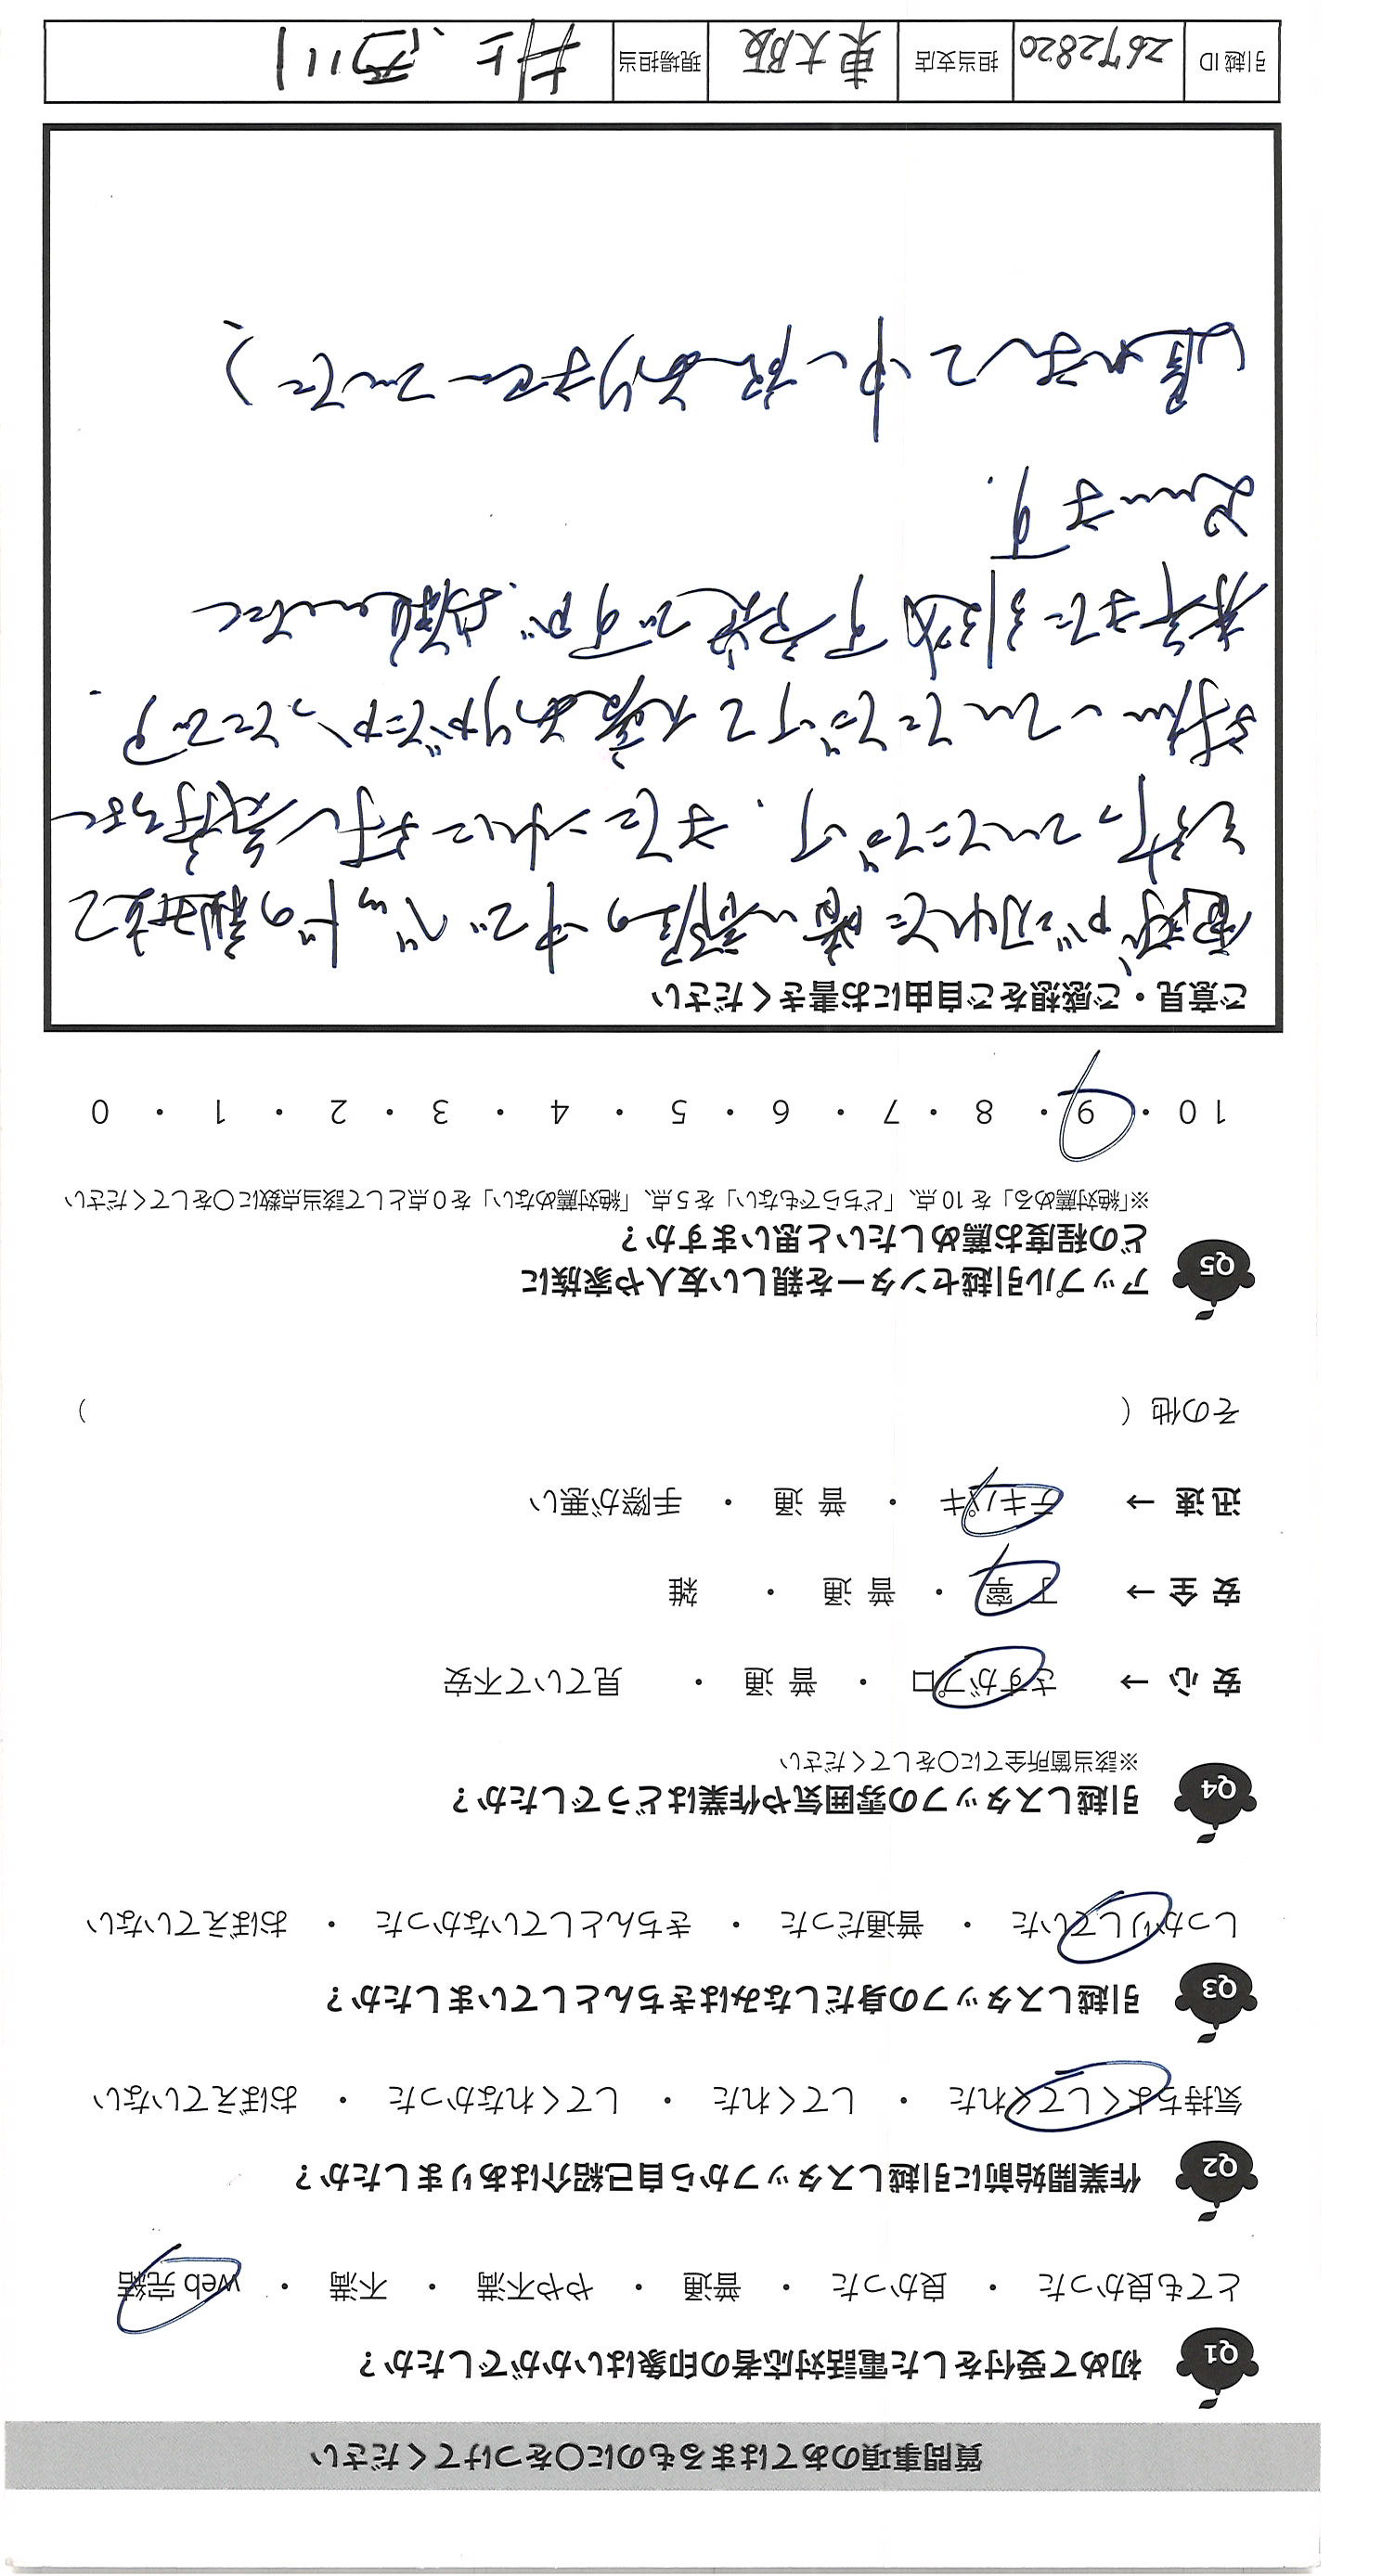 質問事項のあてはまるものに○をつけてください
Q1 初めて受付をした電話対応者の印象はいかがでしたか？
とても良かった ・ 良かった ・ 普通 ・ やや不満 ・ 不満 ・ web 完結
Q2 作業開始前に引越しスタッフから自己紹介はありましたか？
気持ちよくしてくれた ・ してくれた ・ してくれなかった ・ おぼえていない
Q3 引越しスタッフの身だしなみはきちんとしていましたか？
しっかりしていた ・ 普通だった ・ きちんとしていなかった ・ おぼえていない
Q4 引越しスタッフの雰囲気や作業はどうでしたか？
※該当箇所全てに○をしてください
安 心 → さすがプロ ・ 普 通 ・ 見ていて不安
安 全 → 丁 寧 ・ 普 通 ・ 雑
迅 速 → テキパキ ・ 普 通 ・ 手際が悪い
その他（ ）
Q5 アップル引越センターを親しい友人や家族に
どの程度お薦めしたいと思いますか？
※「絶対薦める」を 10 点、「どちらでもない」を 5 点、「絶対薦めない」を 0 点として該当点数に○をしてください
10 ・ 9 ・ 8 ・ 7 ・ 6 ・ 5 ・ 4 ・ 3 ・ 2 ・ 1 ・ 0
ご意見・ご感想をご自由にお書きください
電球が切れた暗い部屋の中でベッドの組立て
を行っていただき、また
いただけて大変ありがたかったです。
来年また引越す予定ですが、お願いしたく
思います。
遅れまして申し訳ありませんでした）
引越 ID 2672820 担当支店 東大阪 現場担当 井上、西川